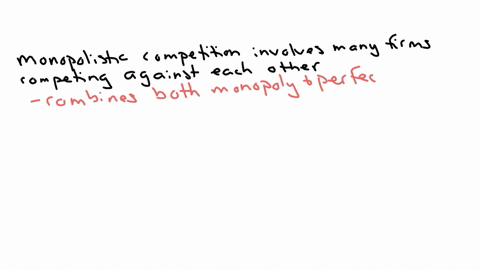 monopolistic competition involves many firms
competing against each other
- combines both monopoly + perfec